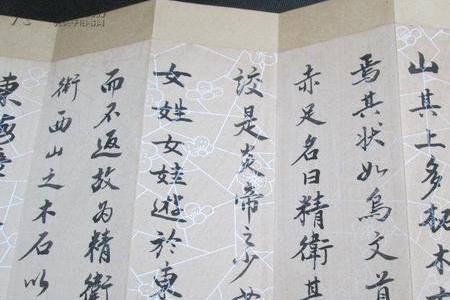 山其上多柘木
焉其状如烏文首
赤足名曰精衛其
詨是炎帝之少女
女姓女娃遊於東
而不返故为精衛
衔西山之木石以
東海